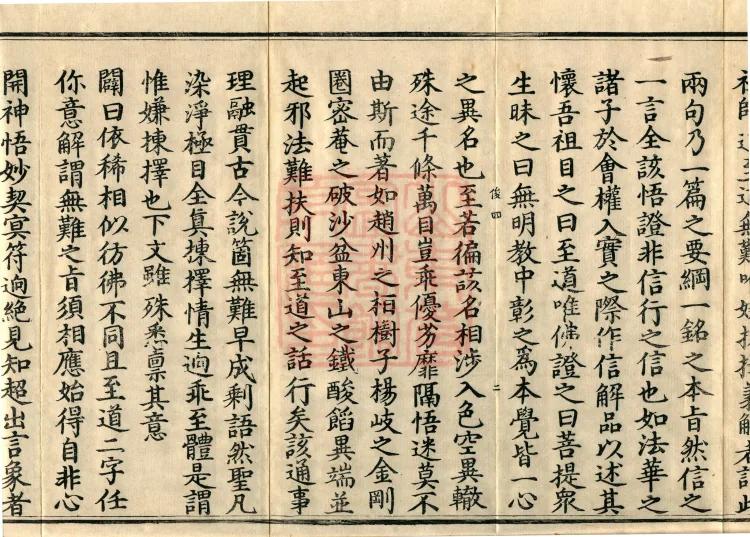 祖師道至道無難唯嫌揀擇
兩句乃一篇之要綱一銘之本旨然信之
一言全該悟證非信行之信也如法華之
諸子於會權入實之際作信解品以述其
懷吾祖目之曰至道唯佛證之曰菩提衆
生昧之曰無明教中彰之為本覺皆一心
俊四
二
之異名也至若徧該名相涉入色空異轍
殊途千條萬目豈乖優劣靡隔悟迷莫不
由斯而著如趙州之栢樹子楊岐之金剛
圈密菴之破沙盆東山之鐵酸餡異端並
起邪法難扶則知至道之話行矣該通事
理融貫古今說箇無難早成剩語然聖凡
染淨極目全真揀擇情生逈乖至體是謂
惟嫌揀擇也下文雖殊悉禀其意
闢曰依稀相似彷彿不同且至道二字任
你意解謂無難之旨須相應始得自非心
開神悟妙契冥符逈絶見知超出言象者